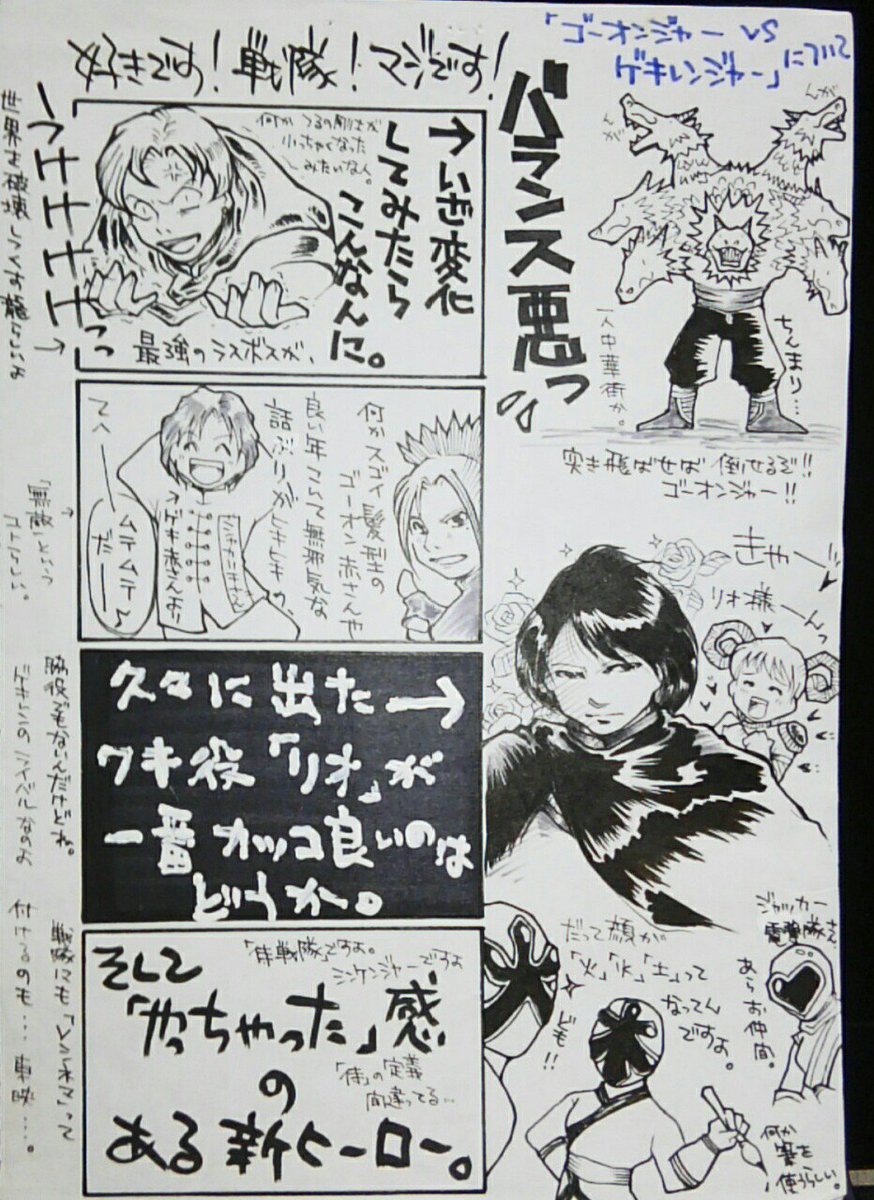 「ゴーオンジャー VS
ゲキレンジャー」について
好きです!戦隊!マジです!
バランス悪っ
んが
んが
ちんまり…
一人中華街か。
突き飛ばせば倒せるぞ!!
ゴーオンジャー!!
→いざ変化
してみたら
こんなんに。
何か
小っちゃくなった
みたいな人。
最強のラスボスが、
うけけけけっっ
世界を破壊しつくす龍らしいよ
何かスゴイ髪型の
ゴーオン赤さんや
良い年こいて無邪気な
話ぶりが
ゲキ赤さんより
てへー
ムテムテ
だー
「無敵」という
コトらしい。
きゃー
リオ様ーんっ
久々に出た→
ワキ役「リオ」が
一番カッコ良いのは
どうか。
脇役でもないんだけどね。
ゲキレンのライバルなのよ
そして
「侍戦隊」ですよ。
シンケンジャーですよ
「やっちゃった」感
の
ある新ヒーロー。
「侍」の定義
間違ってる…
戦隊にも「Vシネマ」って
付けるのも…東映…。
だって顔が
「火」「水」「土」って
なってん
ですよ。
ども!!
ジャッカー
電撃隊さん
あらお仲間。
何か
筆を
使うらしい。